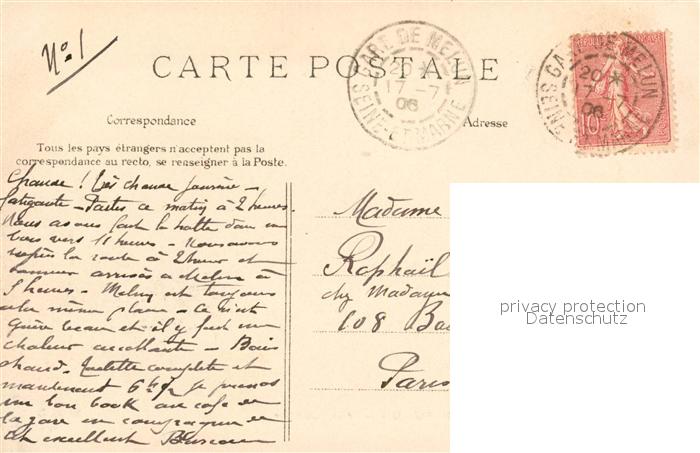 N° 1
CARTE POSTALE
GARE DE MELUN
20 *
17 - 7
06
SEINE-ET-MARNE
GARE DE MELUN
20 *
17 - 7
06
SEINE-ET-MARNE
10
Correspondance
Adresse
Tous les pays étrangers n'acceptent pas la
correspondance au recto, se renseigner à la Poste.
Chaude ! Très chaude journée -
fatigante - Partis ce matin à 2 heures.
Nous avons fait la halte dans un
bois vers 11 heures - Nous avons
repris la route à 2 heures et
sommes arrivés à Melun à
5 heures - Melun est toujours
à la même place - Ce n'est
guère beau et il y fait une
chaleur - Bain
chaud - toilette complète et
maintenant 6h½ je prends
un bon bock au café de
la gare en compagnie de
cet excellent
Madame
Raphaël
chez Madame
108
Paris
privacy protection
Datenschutz